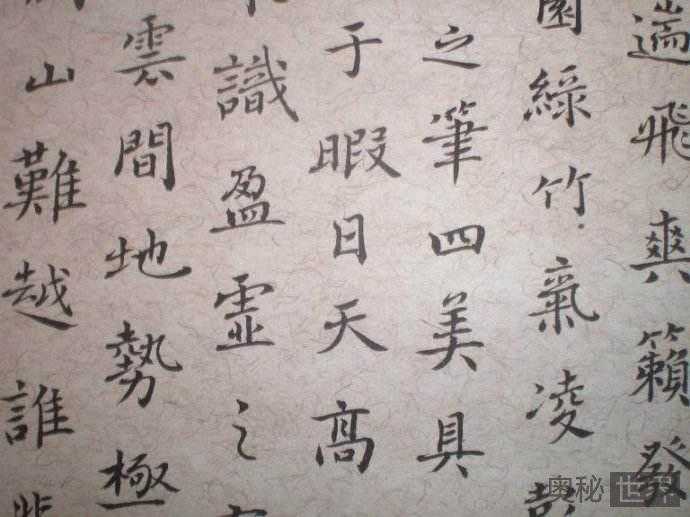 遄飛爽籟發
園綠竹氣凌彭
之筆四美具
于暇日天高
識盈虛之
雲間地勢極
山難越誰悲
奥秘世界